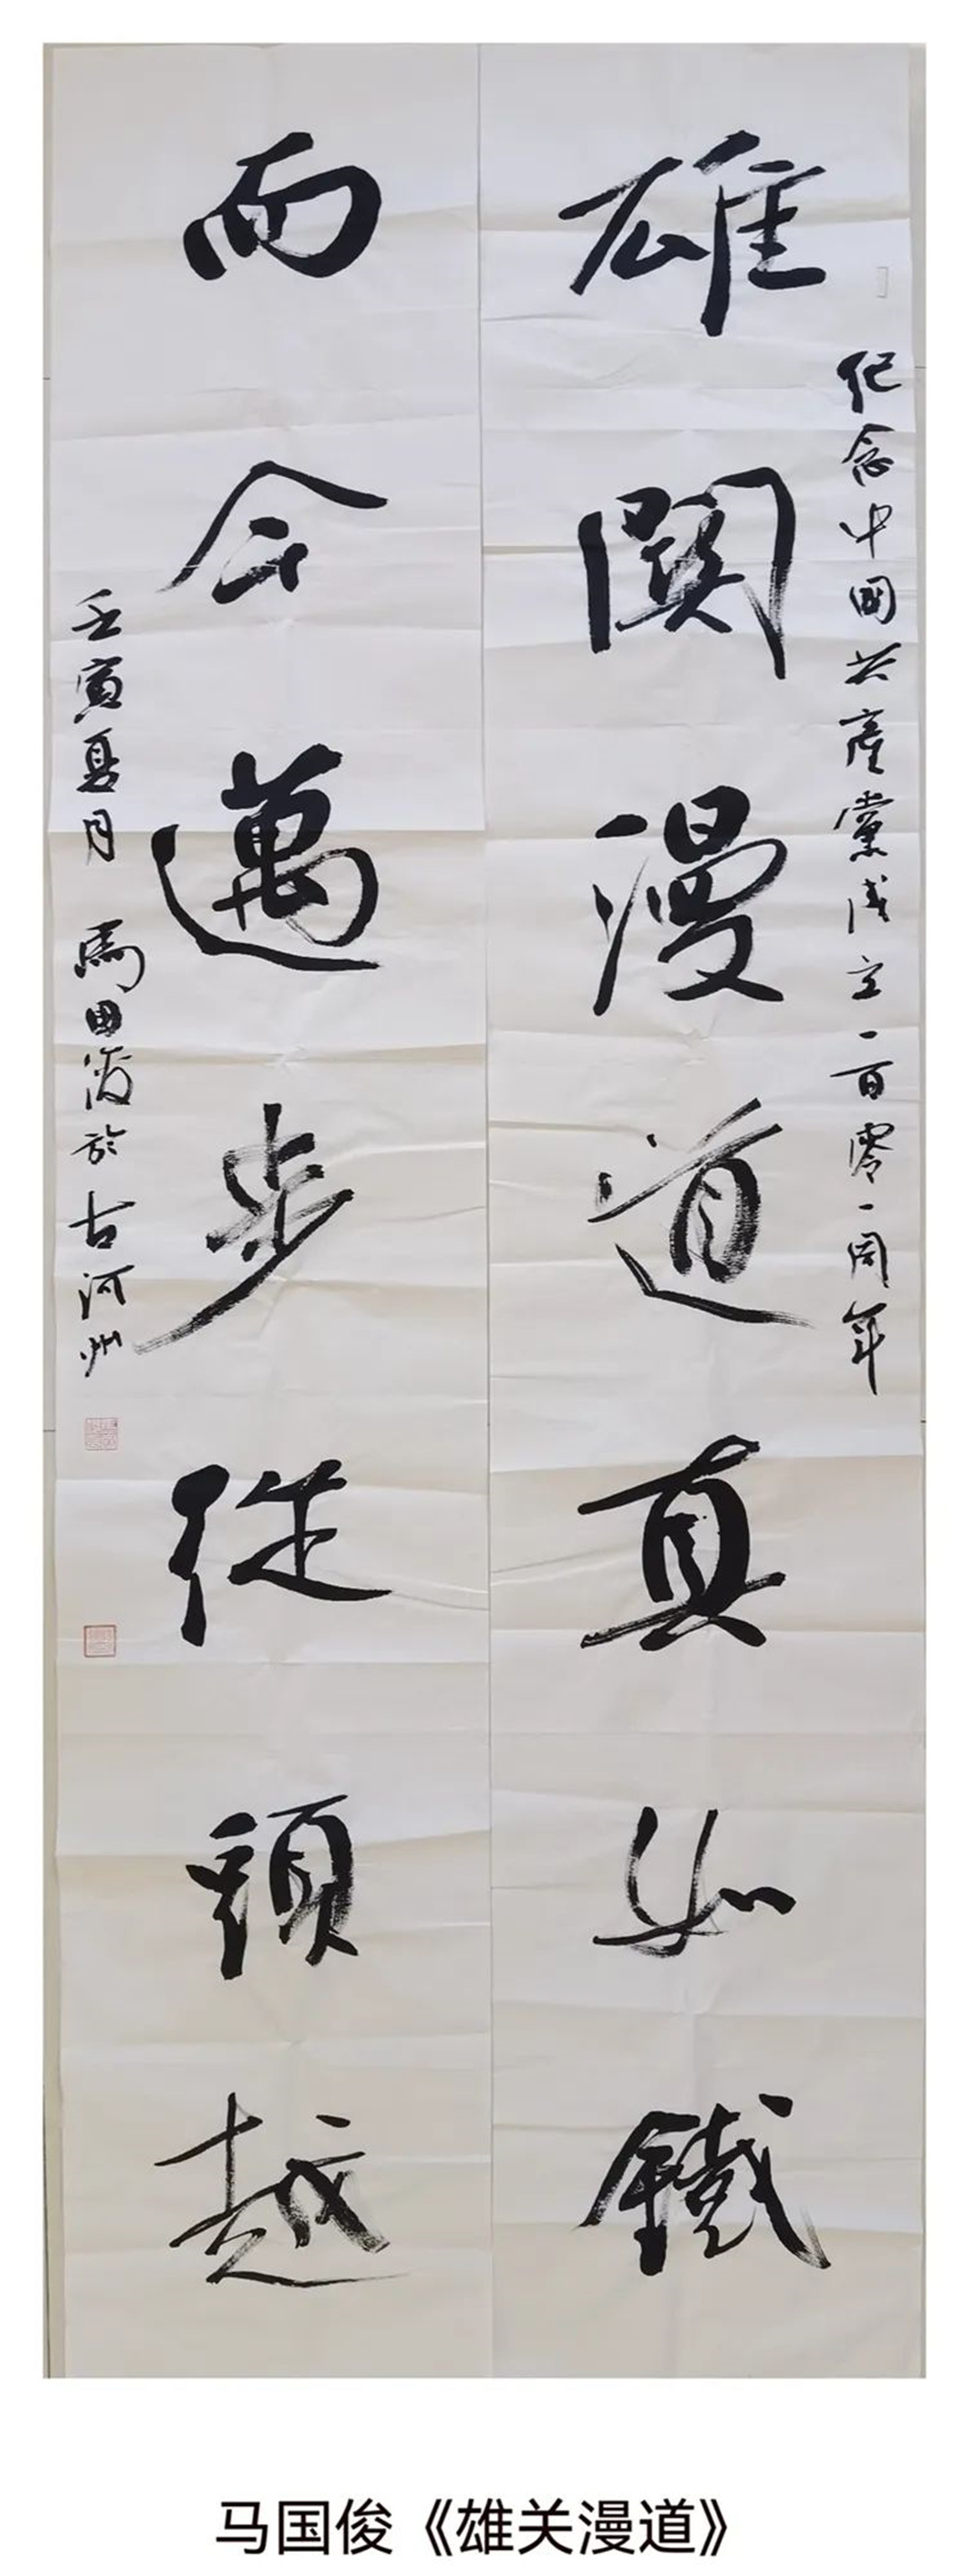 雄關漫道真如鐵
纪念中國共產黨成立一百零一周年
而今邁步從頭越
壬寅夏月 馬国俊於古河州
马国俊《雄关漫道》